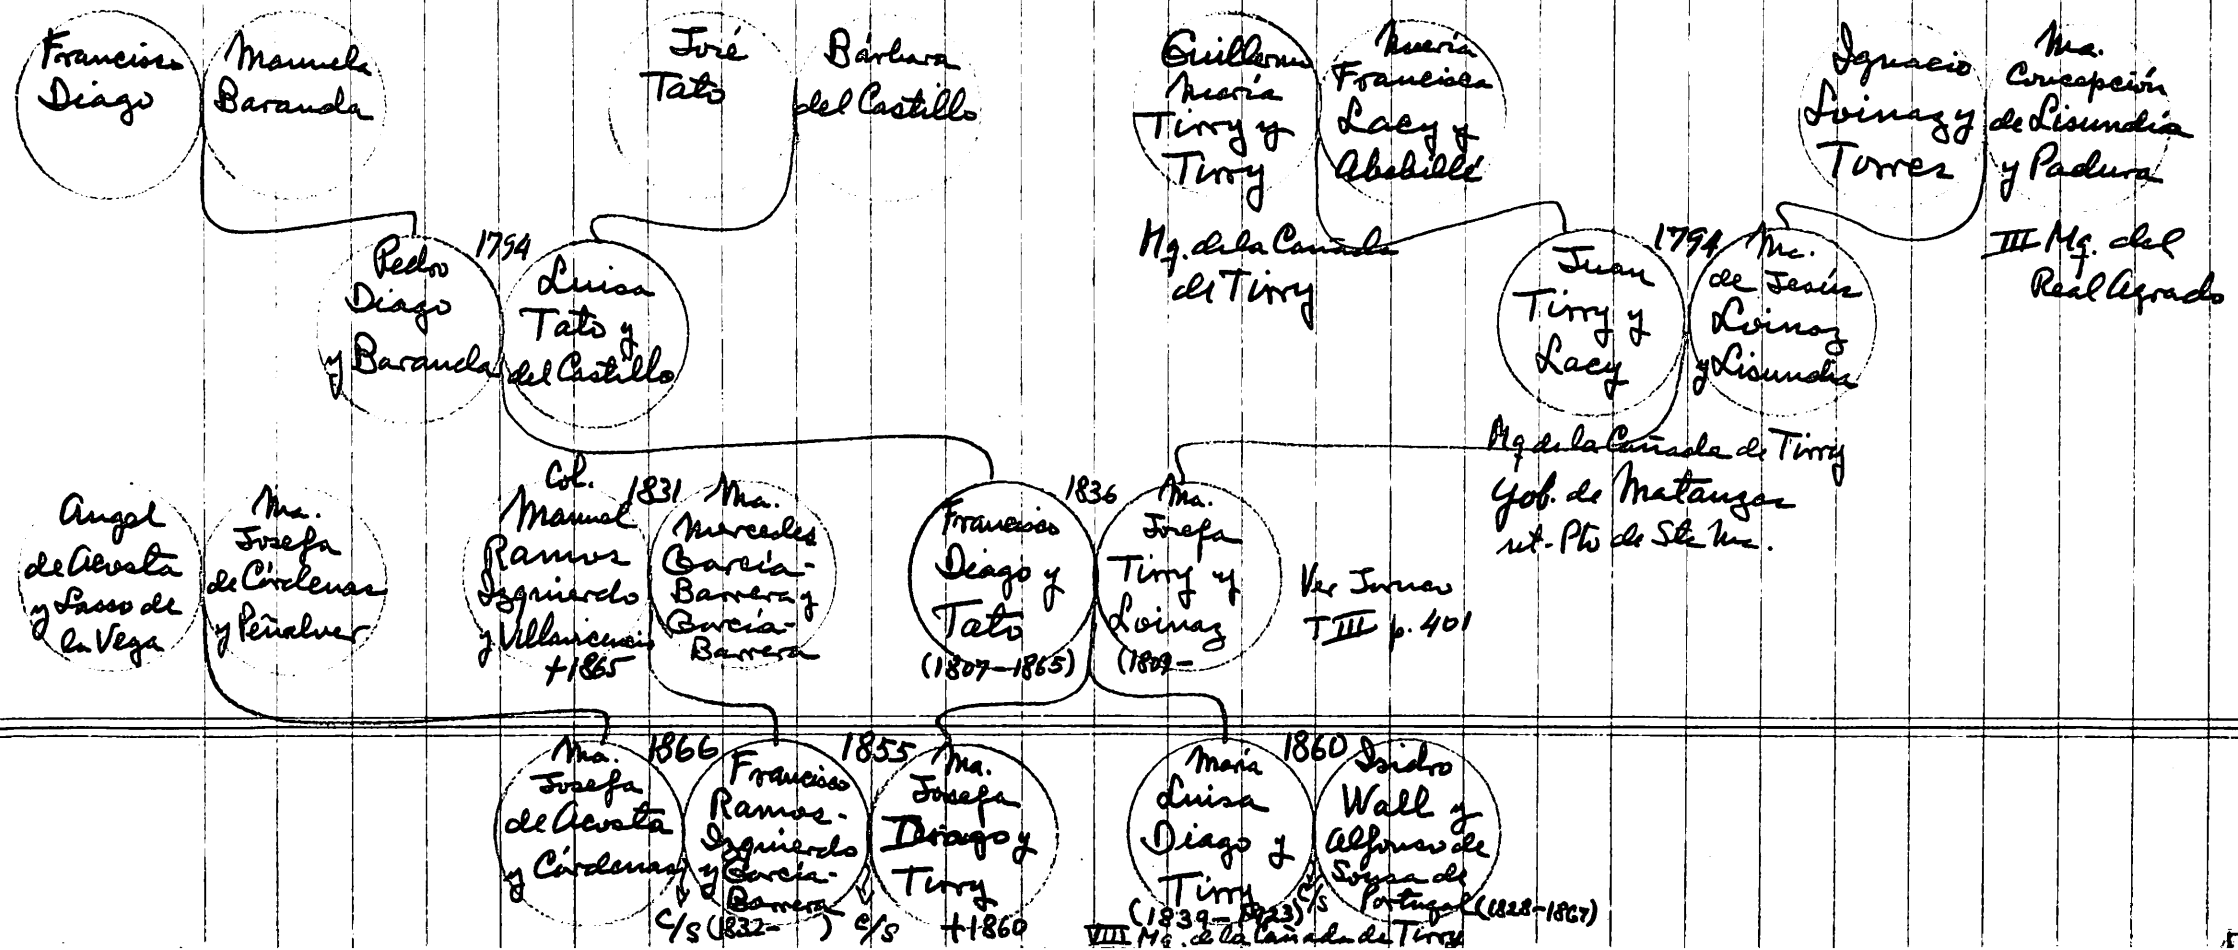 Francisco
Diago
Manuela
Baranda
José
Tato
Bárbara
del Castillo
Guillermo
María
Tirry y
Tirry
María
Francisca
Lacy y
Ababillé
Ignacio
Loinaz y
Torres
Ma.
Concepción
de Lisundia
y Padura
Mq. de la Cañada
de Tirry
III Mq. del
Real Agrado
Pedro
Diago
y Baranda
1794
Luisa
Tato y
del Castillo
Juan
Tirry y
Lacy
1794
Ma.
de Jesús
Loinaz
y Lisundia
Mq de la Cañada de Tirry
Gob. de Matanzas
nt. Pto de Sta Ma.
Angel
de Acosta
y Lasso de
la Vega
Ma.
Josefa
de Córdenas
y Peñalver
Col.
Manuel
Ramos
Izquierdo
y Villavicencio
+1865
1831
Ma.
Mercedes
García-
Barrera y
García-
Barrera
Francisco
Diago y
Tato
(1807-1865)
1836
Ma.
Josefa
Tirry y
Loinaz
(1809-
Ver
T III p. 401
Ma.
Josefa
de Acosta
y Córdenas
1866
c/s
Francisco
Ramos-
Izquierdo
y García-
Barrera
(1832-     )
1855
c/s
Ma.
Josefa
Diago y
Tirry
+1860
María
Luisa
Diago y
Tirry
(1839-1923)
VIII Mq. de la Cañada de Tirry
1860
c/s
Isidro
Wall y
Alfonso de
Sousa de
Portugal (1828-1867)